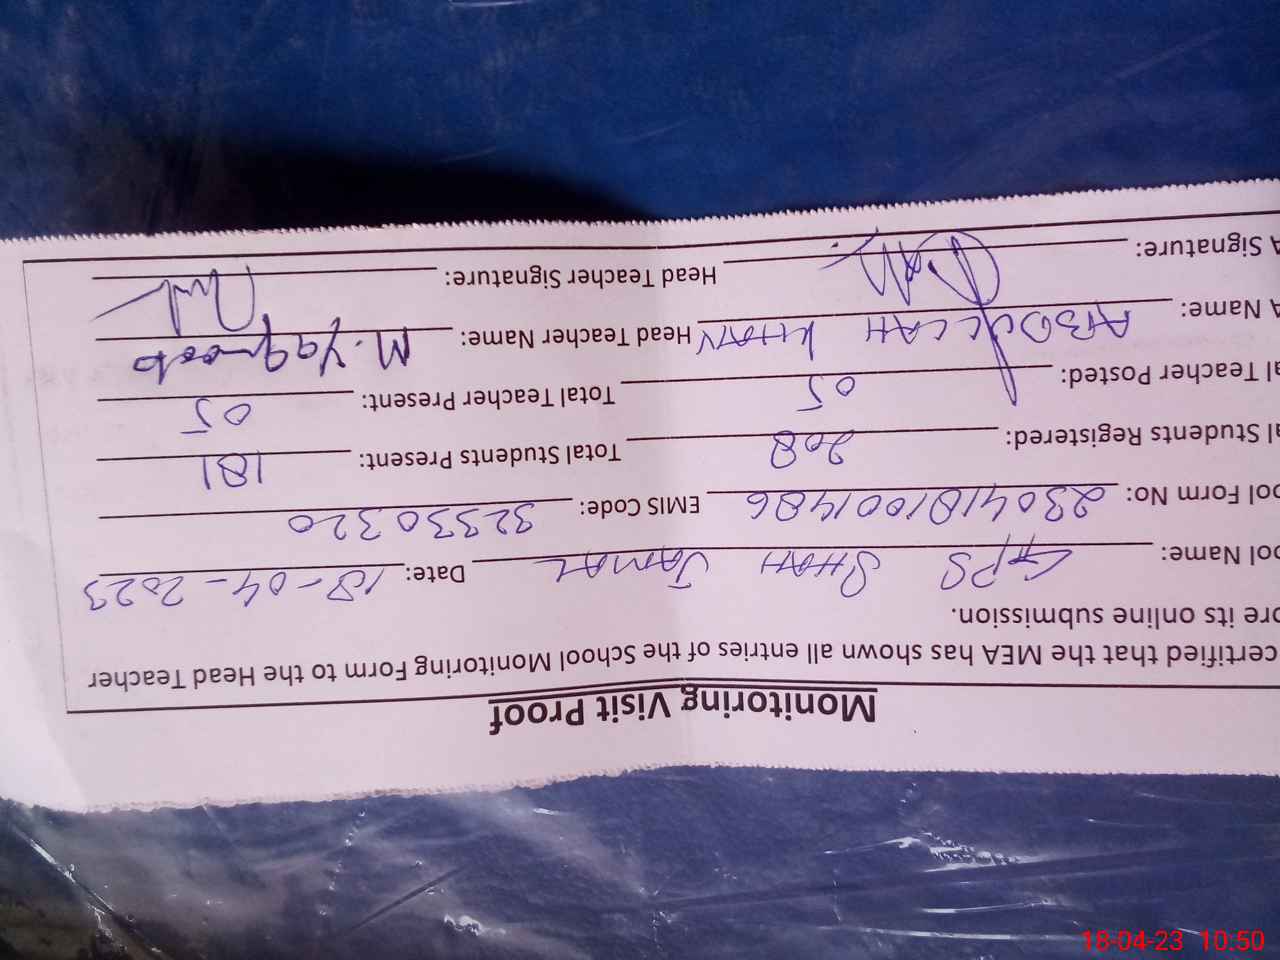 Monitoring Visit Proof
certified that the MEA has shown all entries of the School Monitoring Form to the Head Teacher
ore its online submission.
ool Name: GPS SHAH JAMAL Date: 18-04-2023
ool Form No: 2304181001486 EMIS Code: 32330320
al Students Registered: 208 Total Students Present: 181
al Teacher Posted: 05 Total Teacher Present: 05
A Name: ABDULLAH KHAN Head Teacher Name: M. Yaqoob
A Signature: Head Teacher Signature:
18-04-23 10:50